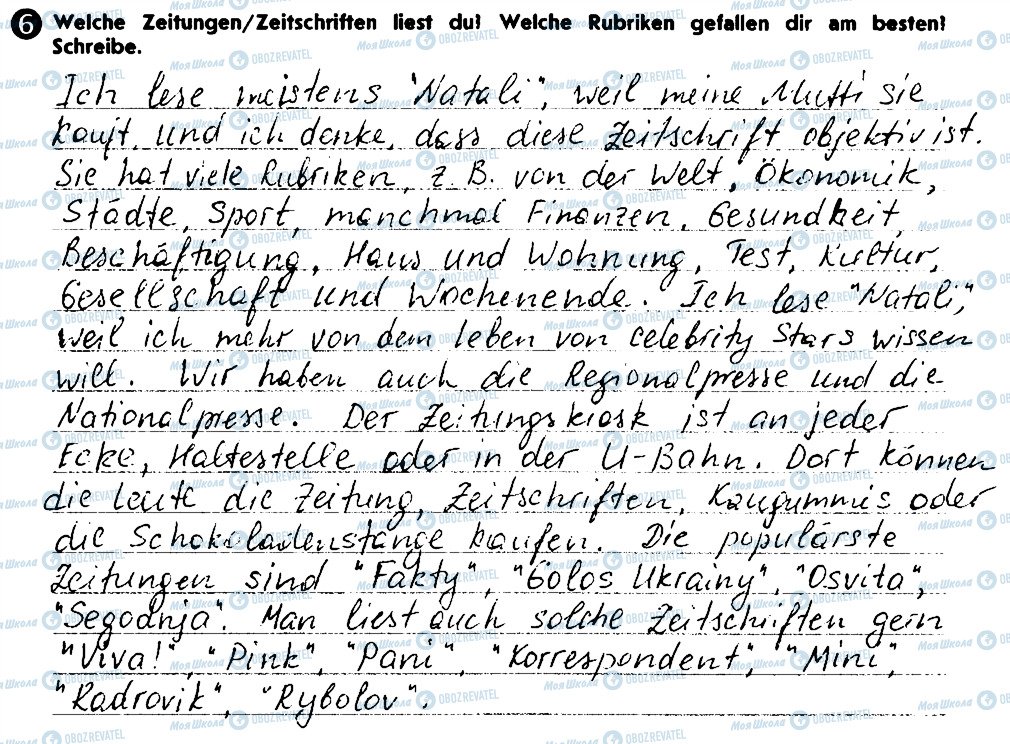 6 Welche Zeitungen/Zeitschriften liest du? Welche Rubriken gefallen dir am besten?
Schreibe.
Ich lese meistens "Natali", weil meine Mutti sie
kauft, und ich danke, dass diese Zeitschrift objektiv ist.
Sie hat viele Rubriken, z. B. von der Welt, Ökonomik,
Städte, Sport, manchmal Finanzen, Gesundheit,
Beschäftigung, Haus und Wohnung, Test, Kultur,
Gesellschaft und Wochenende. Ich lese "Natali",
weil ich mehr von dem Leben von celebrity Stars wissen
will. Wir haben auch die Regionalpresse und die
Nationalpresse. Der Zeitungskiosk ist an jeder
Ecke, Haltestelle oder in der U-Bahn. Dort können
die Leute die Zeitung, Zeitschriften, Kaugummis oder
die Schokoladenstange kaufen. Die populärste
Zeitungen sind "Fakty", "Golos Ukrainy", "Osvita",
"Segodnja". Man liest auch solche Zeitschriften gern
"Viva!", "Pink", "Pani", "Korrespondent", "Mini",
"Kadrovik", "Rybolov".